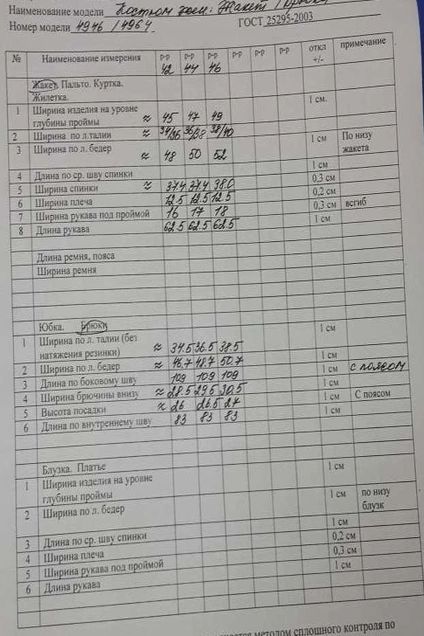 Наименование модели Костюм жен: Жакет / брюки
Номер модели 4946 / 4964 ГОСТ 25295-2003
№ Наименование измерения р-р 42 р-р 44 р-р 46 р-р р-р р-р откл +/- примечание
Жакет. Пальто. Куртка. Жилетка.
1 Ширина изделия на уровне глубины проймы ≈ 45 47 49 1 см.
2 Ширина по л.талии ≈ 34/36 36/38 38/40
3 Ширина по л. бедер ≈ 48 50 52 1 см По низу жакета
4 Длина по ср. шву спинки 1 см
5 Ширина спинки ≈ 37.4 37.4 38.0 0,3 см
6 Ширина плеча 12.5 12.5 12.5 0,2 см
7 Ширина рукава под проймой 16 17 18 0,3 см всгиб
8 Длина рукава 62.5 62.5 62.5 1 см
Длина ремня, пояса
Ширина ремня
Юбка. Брюки
1 Ширина по л. талии (без натяжения резинки) ≈ 34.5 36.5 38.5 1 см
2 Ширина по л. бедер ≈ 46.7 48.7 50.7 1 см
3 Длина по боковому шву 109 109 109 1 см с поясом
4 Ширина брючины внизу ≈ 28.5 29.5 30.5 1 см
5 Высота посадки ≈ 26 26.5 27 1 см С поясом
6 Длина по внутреннему шву 83 83 83
Блузка. Платье
1 Ширина изделия на уровне глубины проймы 1 см
2 Ширина по л. бедер 1 см по низу блузк
3 Длина по ср. шву спинки 1 см
4 Ширина плеча 0,2 см
5 Ширина рукава под проймой 0,3 см
6 Длина рукава 1 см
методом сплошного контроля по